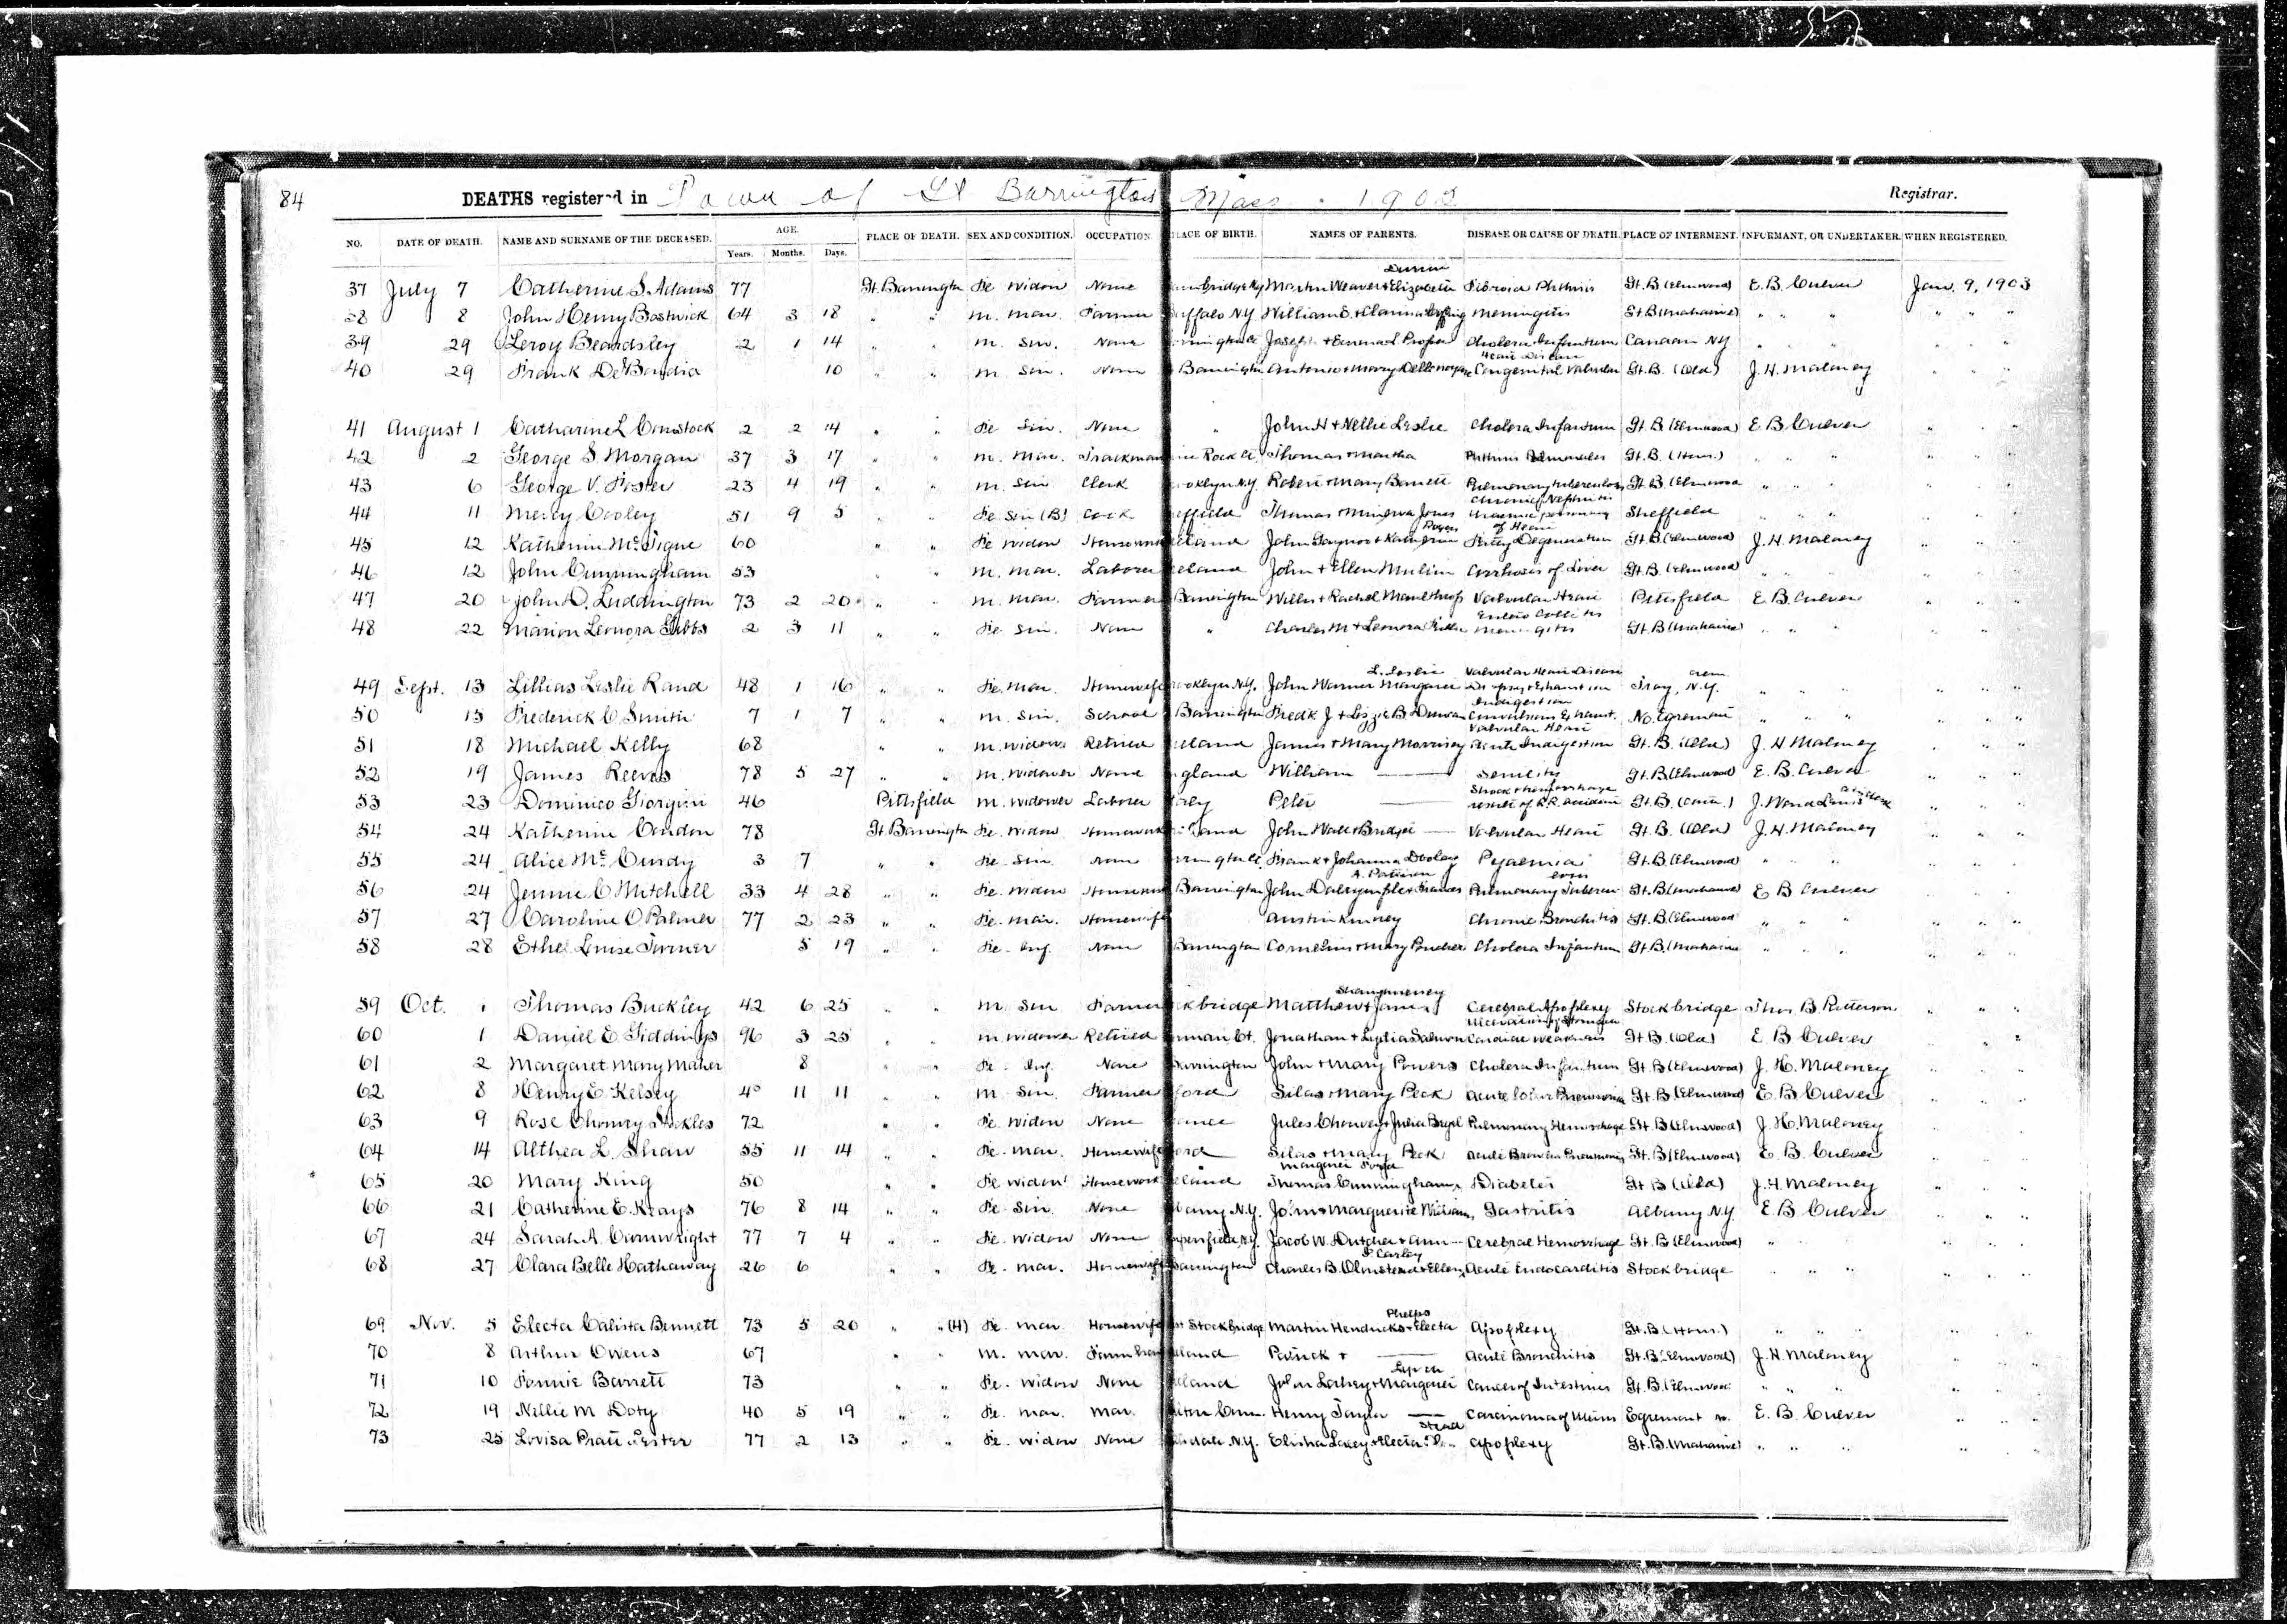 84 DEATHS registered in Town of Gt Barrington Mass. 1902 Registrar.
NO. DATE OF DEATH. NAME AND SURNAME OF THE DECEASED. AGE. Years. Months. Days. PLACE OF DEATH. SEX AND CONDITION. OCCUPATION. LACE OF BIRTH. NAMES OF PARENTS. DISEASE OR CAUSE OF DEATH. PLACE OF INTERMENT. INFORMANT, OR UNDERTAKER. WHEN REGISTERED.
37 July 7 Catherine S. Adams 77 Gt. Barrington Fe Widow None Martin Weaver & Elizabeth Fibroid Phthisis Gt. B (Elmwood) E. B. Culver Jan. 9, 1903
38 8 John Henry Bostwick 64 3 18 " " M. Mar. Farmer uffalo N.Y. William E. & Clarina Meningitis Gt B (Mahaiwe) " " "
39 29 Leroy Beardsley 2 1 14 " " M. Sin. None Joseph & Emma L Proper Cholera Infantum Canaan NY
Heart Disease
40 29 Frank 10 " " M. Sin. None Barrington Antonio & Mary Congenital Valvular Gt. B. (Old) J. H. Maloney
41 August 1 Catharine L Comstock 2 2 14 " " Fe Sin. None " John H & Nellie Leslie Cholera Infantum Gt. B (Elmwood) E B Culver
42 2 George S. Morgan 37 3 17 " " M. Mar. Trackman Rock Ct. Thomas & Martha Phthisis Pulmonalis Gt. B. (Hous.) " " "
43 6 George V. Foster 23 4 19 " " M. Sin Clerk ooklyn N.Y. Robert & Mary Barrett Pulmonary tuberculosis Gt. B (Elmwood " " "
Chronic Nephritis
44 11 Mercy Cooley 51 9 5 " " Fe Sin (B) Cook effield Thomas & Minerva Jones Uraemic poisoning Sheffield " " "
Rogers of Heart
45 12 Katherine McTigue 60 " " Fe Widow eland John Gaynor & Katherine Fatty Degeneration Gt. B (Elmwood) J. H. Maloney
46 12 John Cunningham 53 " " M. Mar. Laborer eland John & Ellen Cirrhosis of Liver Gt. B. (Elmwood) " " "
47 20 John D. Luddington 73 2 20 " " M. Mar. Farmer Barrington Willis & Rachel Valvular Heart Pittsfield E. B. Culver
Entero Colitis
48 22 Marion Leonora Gibbs 2 3 11 " " Fe Sin. None " Charles M & Leonora Meningitis Gt. B (Mahaiwe) " " "
L. Leslie Valvular Heart Disease crem.
49 Sept. 13 Lillias Leslie Rand 48 1 16 " " Fe. Mar. Housewife ooklyn N.Y. John Warner Margaret Dropsy & Exhaustion Troy, N.Y. " " "
Indigestion
50 15 Frederick C. Smith 7 1 7 " " M. Sin. School Barrington Fredk J & Lizzie B Duncan Convulsions Exhaust. No. Egremont " " "
Valvular Heart
51 18 Michael Kelly 68 " " M. Widow. Retired eland James & Mary Morrisey Acute Indigestion Gt. B. (Old) J. H Maloney
52 19 James Reeves 78 5 27 " " M. Widower None gland William — Senility Gt. B. (Elmwood) E B. Culver
Shock & hemorrhage
53 23 Dominico Giorgini 46 Pittsfield M. Widower Laborer Peter — result of R.R. accident Gt. B. J. Ward Lewis
54 24 Katherine Condon 78 Gt. Barrington Fe. Widow Housework John Wall & Bridget — Valvular Heart Gt. B. (Old) J. H. Maloney
55 24 Alice McCurdy 3 7 " " Fe. Sin None Frank & Johanna Dooley Pyaemia Gt. B (Elmwood) " " "
56 24 Jennie C Mitchell 33 4 28 " " Fe. Widow Barrington John Dalrymple & Frances Pulmonary Tubercu Gt. B (Mahaiwe) E B Culver
57 27 Caroline O Palmer 77 2 23 " " Fe. Mar. Housewife Austin Kinney Chronic Bronchitis Gt. B. (Elmwood " " "
58 28 Ethel Louise Turner 5 19 " " Fe. Inf. None Barrington Cornelius & Mary Poucher Cholera Infantum Gt. B. (Mahaiwe " " "
59 Oct. 1 Thomas Buckley 42 6 25 " " M Sin Farmer ckbridge Matthew & Jane Cerebral Apoplexy Stockbridge Thos B. Patterson
Ulceration of Stomach
60 1 Daniel E. Giddings 96 3 25 " " M. Widower Retired rman Ct. Jonathan & Lydia Cardiac Weakness Gt B. (Old) E B Culver
61 2 Margaret Mary Maher 8 " " Fe Inf. None Barrington John & Mary Powers Cholera Infantum Gt. B (Elmwood) J. H. Maloney
62 8 Henry E. Kelsey 40 11 11 " " M Sin. Farmer ford Silas & Mary Peck Acute Lobar Pneumonia Gt. B (Elmwood) E. B Culver
63 9 Rose 72 " " Fe. Widow None ance Jules & Julia Pulmonary Hemorrhage Gt. B (Elmwood) J. H. Maloney
64 14 Althea L. Shaw 55 11 14 " " Fe. Mar. Housewife ford Silas & Mary Peck Acute Pneumonia Gt. B (Elmwood) E. B. Culver
Margaret
65 20 Mary King 50 " " Fe Widow Housework eland Thomas Cunningham Diabetes Gt B (Old) J. H. Maloney
66 21 Catherine E. Krays 76 8 14 " " Fe. Sin. None bany N.Y. John & Marguerite Gastritis Albany N.Y. E. B Culver
67 24 Sarah A. Cartwright 77 7 4 " " Fe. Widow None N.Y. Jacob W. Dutcher & Ann — Cerebral Hemorrhage Gt. B (Elmwood) "
68 27 Clara Belle Hathaway 26 6 " " Fe. Mar. Housewife Barrington Charles B. Olmstead & Ellen Acute Endocarditis Stockbridge " " "
Phelps
69 Nov. 5 Electa Calista Bennett 73 5 20 " " (H) Fe. Mar. Housewife st Stockbridge Martin Hendricks & Electa Apoplexy Gt. B (Hous.) " " "
70 8 Arthur Owens 67 " " M. Mar. eland Patrick & — Acute Bronchitis Gt. B (Elmwood) J. H. Maloney
71 10 Fannie Barrett 73 " " Fe. Widow None eland John & Margaret Cancer of Intestines Gt. B. (Elmwood " " "
72 19 Nellie M Doty 40 5 19 " " Fe. Mar. Mar. Henry Taylor — Carcinoma of Egremont E. B. Culver
73 25 Lovisa Pratt 77 2 13 " " Fe. Widow None N.Y. Elisha & Electa Apoplexy Gt. B. (Mahaiwe) " " "